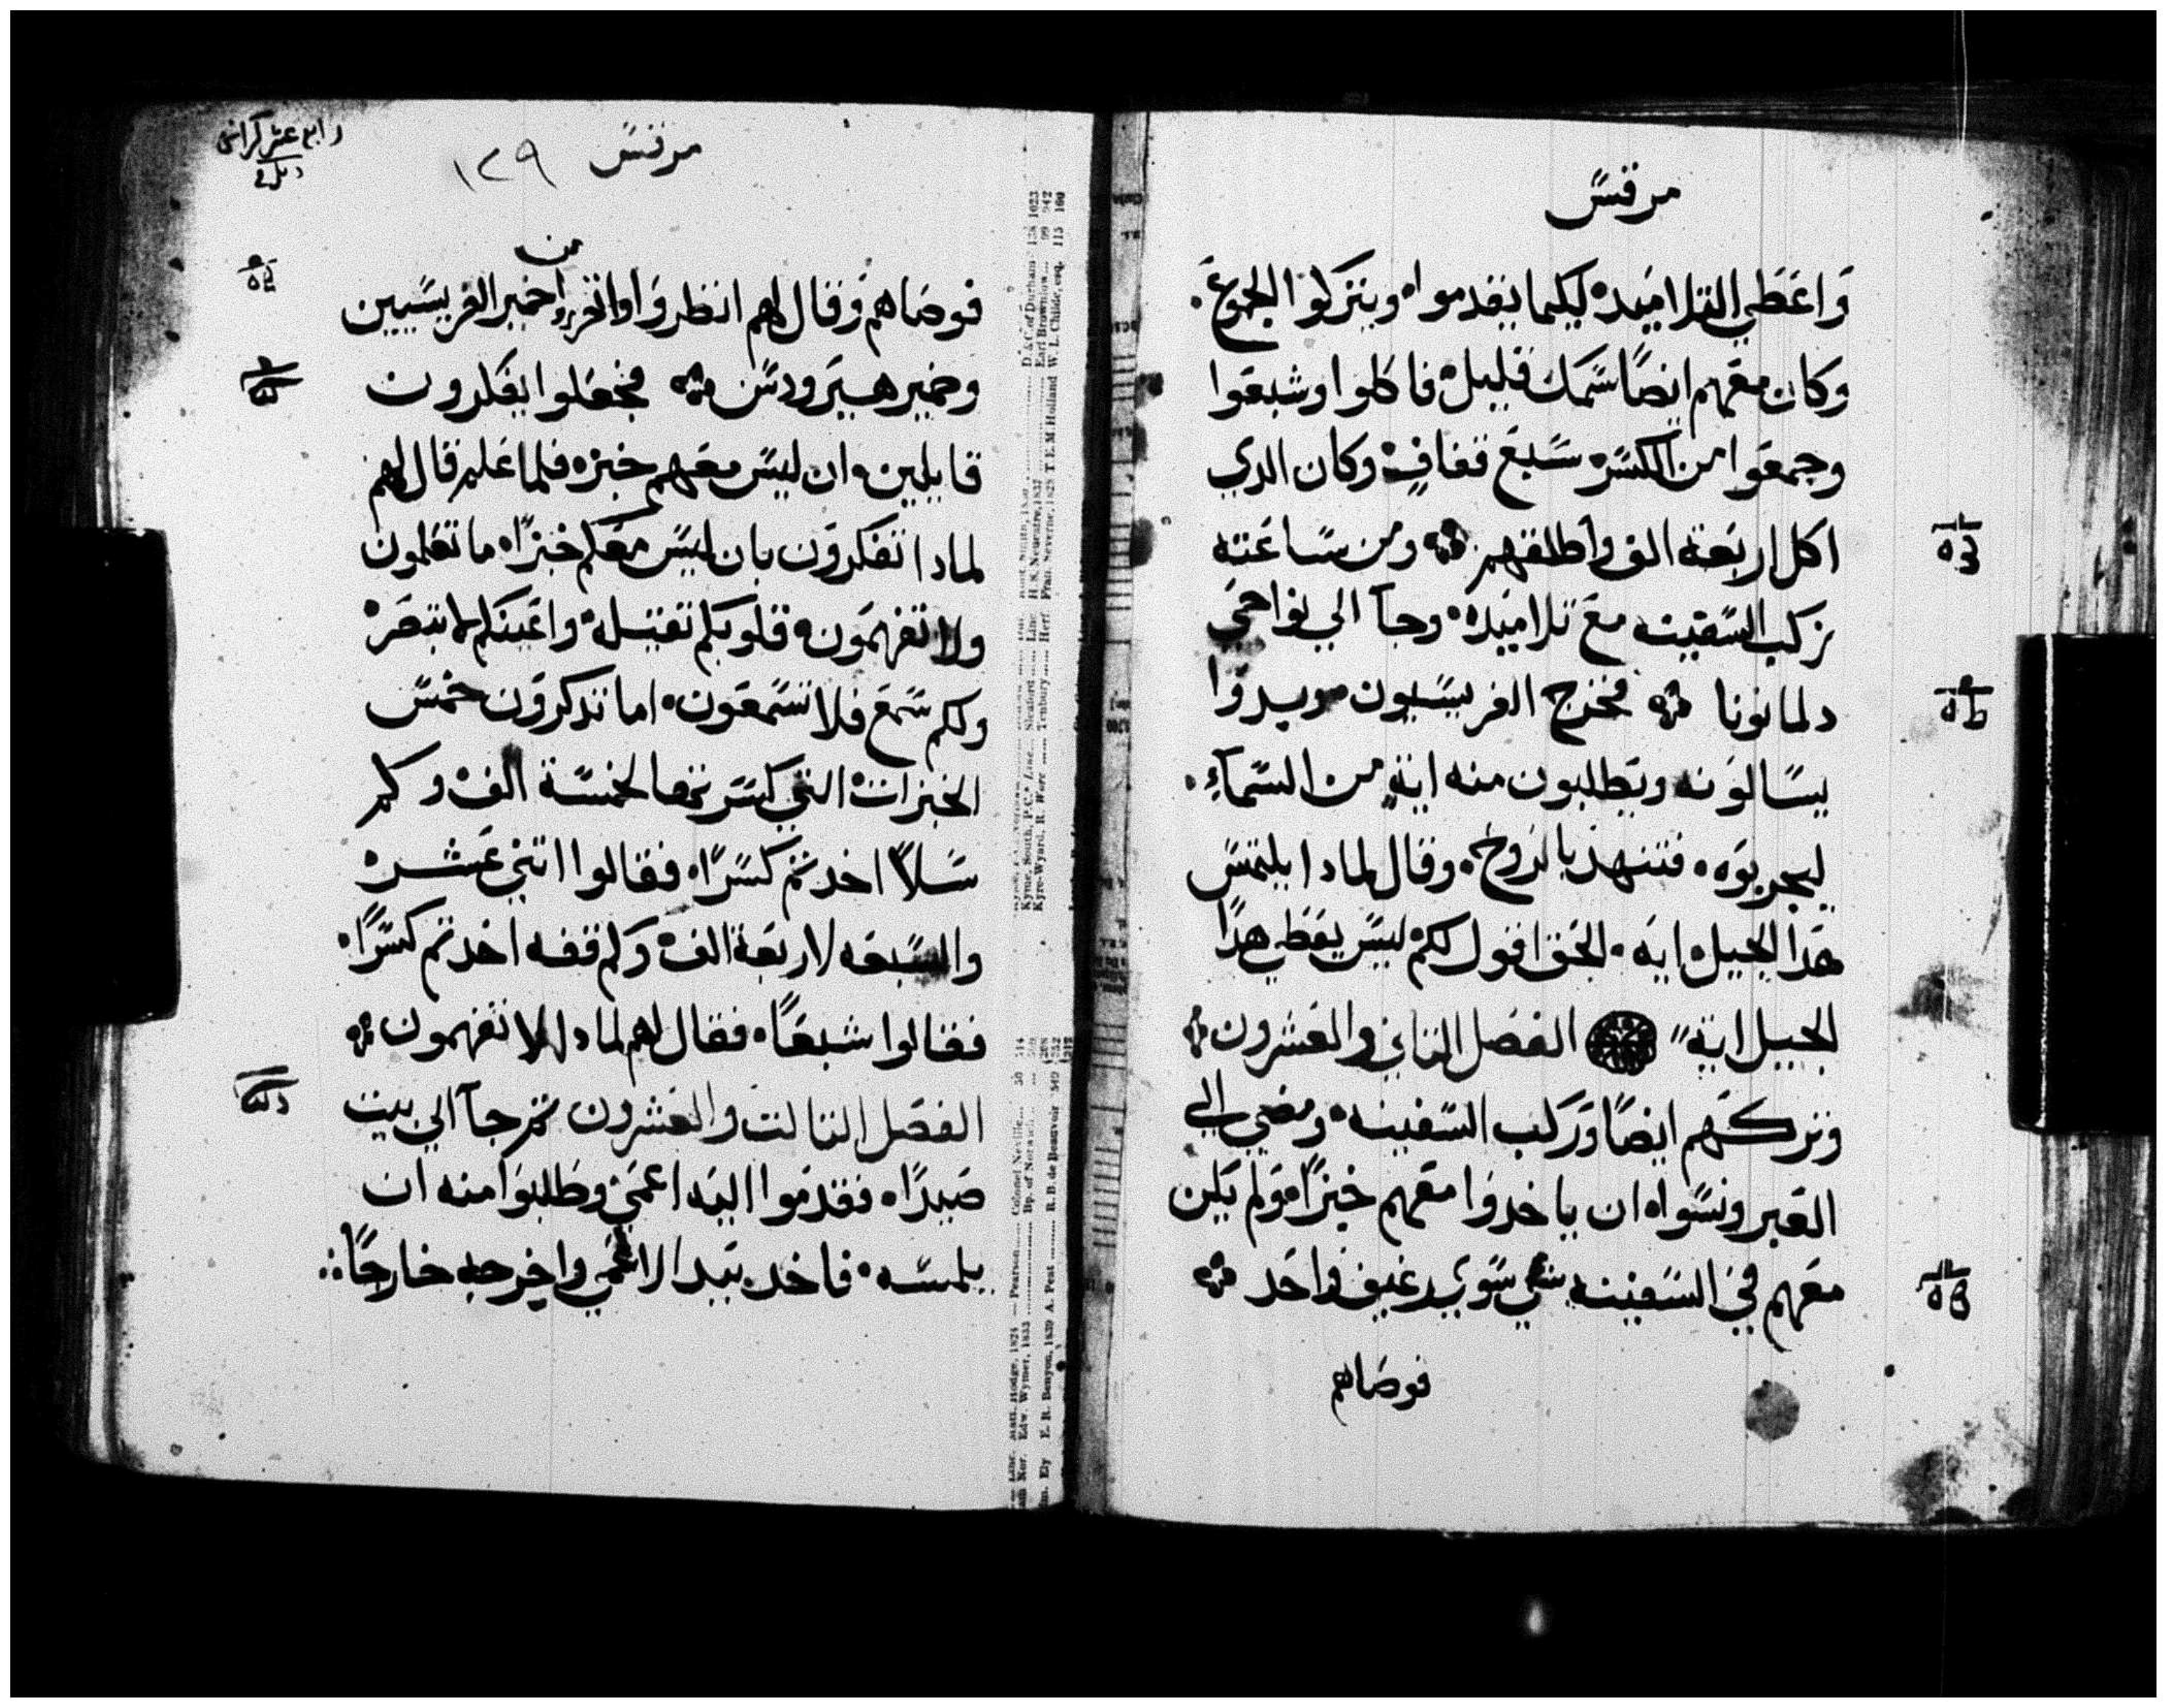 مرقس
وَاعَطَي التلاميَده ليكيما يقدمواه ويتركوا الجموعَ.
وكان معَهم ايضًا سَمَك قليل فاكلوا وشبعَوا
وجمعَوا من الكسَر سَبعَ قفافٍ وكان الدي
اكل اربَعَة الف واطلقهم ومن سَاعَته
ركب السَفينه معَ تلاميَده وجآ الي نواحَي
دلمانونا فخرج الفريسَيون ويبدوا
يسَالونه ويَطلبون منه ايةٍ من السَمآءِ.
ليجربوَه. فتنهد بالروحَ. وقال لمادا يلتمسَ
هَدا الجيل ايَه. الحَق اقول لكم ليسَ يعَطي هدا
الجيل اية الفصَل التاني والعَشرون
وتركهَم ايضًا وَركب السَفينه ومضَي الي
العَبر ونسَواه ان ياخدوا معَهم خبزًا ولم يَكن
معَهم في السَفينه شي سَوي رغيف واحَد
فوصَاهم
رابع عشر كراس
مرقسَ ١٢٩
من
فوصَاهم وَقال لهم انظروَا واتحَرزوا خمير الفريسَيين
وخمير هيَرودسَ فجعَلوا يفكرون
قايلين ان ليسَ معَهم خبز فلما عَلم قال لهم
لمادا تفكروَن بان ليسَ معَكم خبزًا ما تعَلمون
ولا تفهمَون قلوبكم تقيَله واعَينكم لا تبصَر
ولكم سَمعَ فلا تسَمعَون اما تدكروَن خمسَ
الخبزات التي كسَرتها لخمسَة الف وكم
سَلاً اخدتم كسَرًا فقالوا اتني عَشره
والسَبعَه لاربَعَة الف وَكم قفه اخدتم كسَرًا
فقالوا سَبعًَا فقال لهم لمادا لا تفهمون
الفصَل التالت والعَشرون تم جآ الي بيت
صَيدًا فقدموا اليَه اعمَي وطَلبوَا منه ان
يلمسَه. فاخد بيَد الاعمَي واخرجه خارجًا